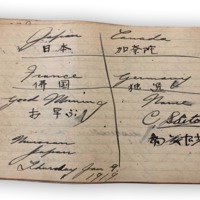 Japan
日本
Canada
加奈陀
France
佛国
Germany
独逸
Good Morning
お早ふ
Name
C.
Muroran
Japan
Thursday Jan 9
1919